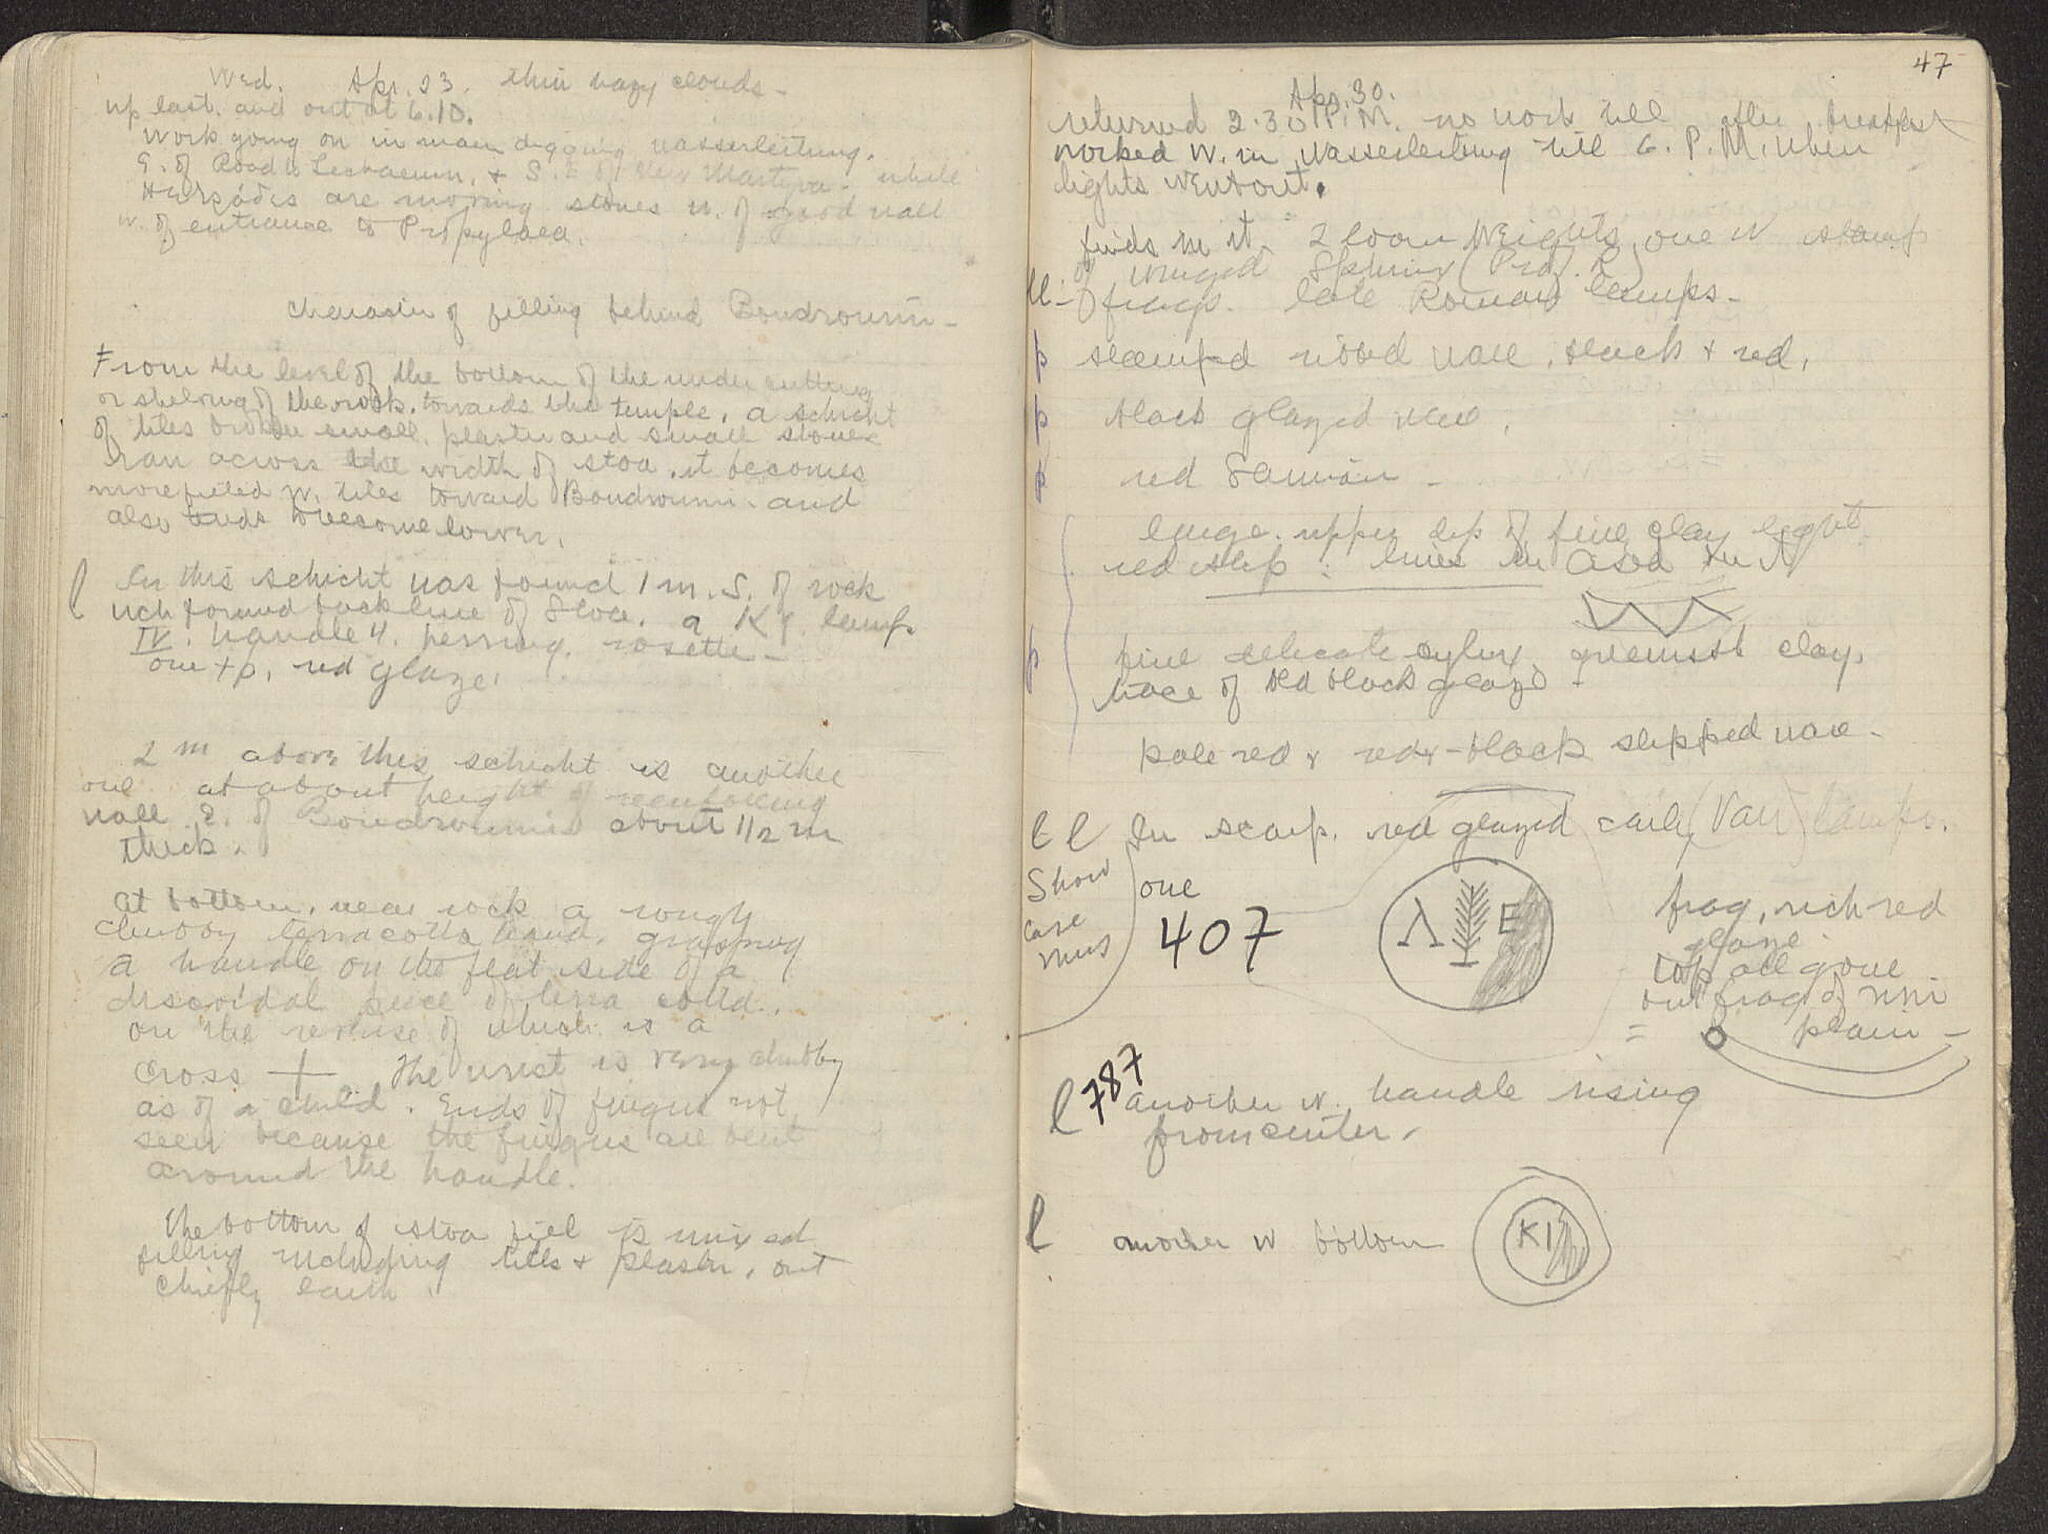 Wed. Apr. 23. thin hazy clouds -
up last. and out at 6.10.
Work going on in main digging wasserleitung.
E. of Road to Lechaeum, + S. E of New Martyra - while
are moving stones w. of good wall
w. of entrance to Propylaea.
Character of filling behind Boudroumi -
From the level of the bottom of the under cutting
or shelving of the rock. towards the temple, a schicht
of tiles broken small, plaster and small stones
ran across the width of stoa. it becomes
more filled w. tiles toward Boudroumi. and
also tends to become lower.
l In this schicht was found 1 m. S. of rock
wch formed back line of Stoa. a lamp.
IV. handle 4. herring. rosette -
one + p, red glaze.
2 m above this schicht is another
one at about height of reenforcing
wall E. of Boudroumi about 1 1/2 m
thick.
At bottom, near rock a rough
chubby terracotta hand. grasping
a handle on the flat side of a
discoidal piece of terra cotta.
on the reverse of which is a
cross + The wrist is very chubby
as of a child. Ends of fingers not
seen because the fingers are bent
around the handle.
The bottom of stoa fill is mixed
filling including tiles + plaster, but
chiefly earth.
47
Apr. 30.
returned 2.30 P.M. no work till after breakfast
worked W. in Wasserleitung till 6. P. M. when
lights went out.
finds in it. 2 loom weights, one w stamp
of winged Sphinx (Prof. R)
ll - frags. late Roman lamps -
p stamped ribbed ware, black + red.
p black glazed ware.
p red Samian -
large. upper lip of fine clay light
red slip : lines in
p fine delicate cylix greenish clay.
trace of red black glaze -
pale red + red + - black slipped ware -
l l In scarp. red glazed early (Vari) lamps.
Show
case
Mus
one
407
Λ E
frag, rich red
glaze.
top all gone
but frag of rim
= plain -
l 787 another w. handle rising
from center.
l another w bottom
KI